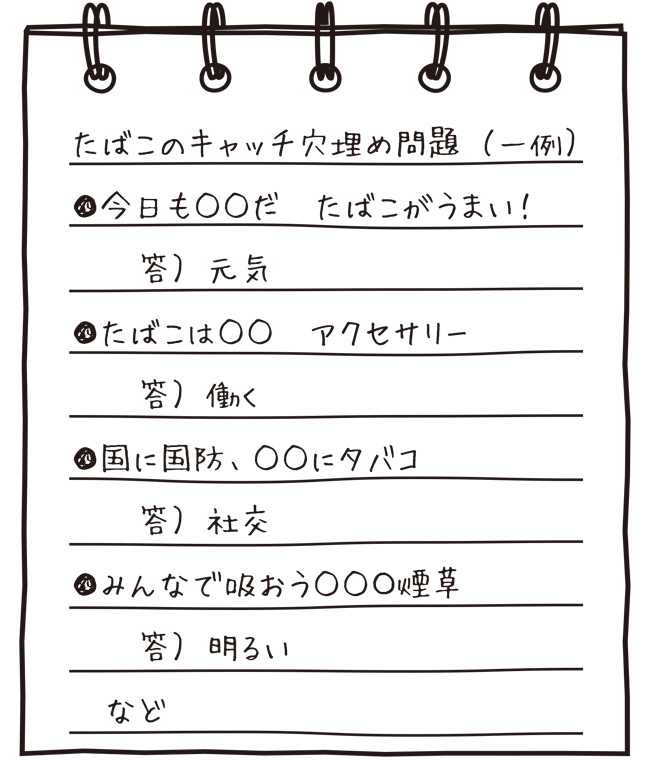 たばこのキャッチ穴埋め問題（一例）
●今日も〇〇だ　たばこがうまい！
答）元気
●たばこは〇〇　アクセサリー
答）働く
●国に国防、〇〇にタバコ
答）社交
●みんなで吸おう〇〇〇煙草
答）明るい
など